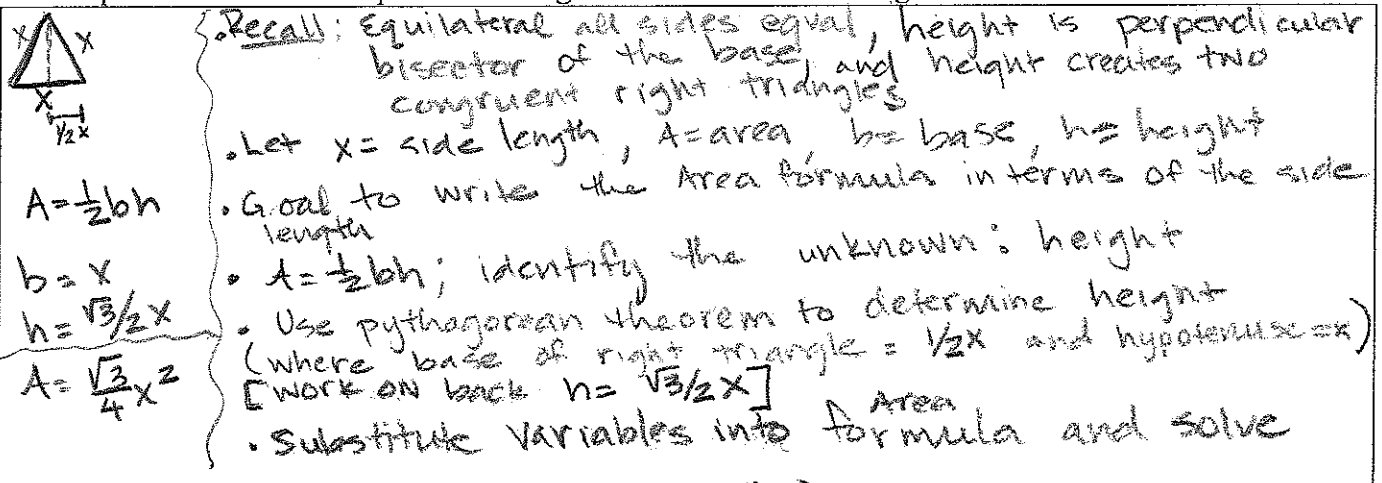 x x
x
1/2x
A=1/2bh
b=x
h=√3/2x
A=√3/4x²
•Recall: Equilateral all sides equal, height is perpendicular
bisector of the base, and height creates two
congruent right triangles
•Let x= side length, A=area, b=base, h=height
•Goal to write the Area formula in terms of the side
length
•A=1/2bh; identify the unknown: height
•Use pythagorean theorem to determine height
(where base of right triangle = 1/2x and hypotenuse=x)
[work on back h= √3/2x]
•Substitute variables into Area formula and solve